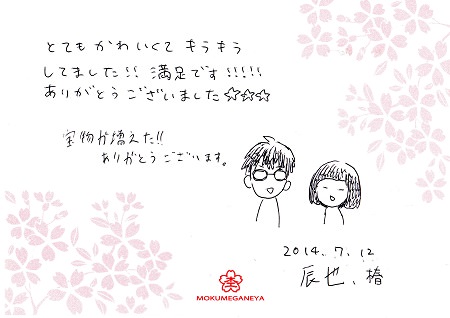 とてもかわいくてキラキラ
してました!! 満足です!!!!!
ありがとうございました☆☆☆
宝物が増えた!!
ありがとうございます。
2014.7.12
辰也、椿
MOKUMEGANEYA